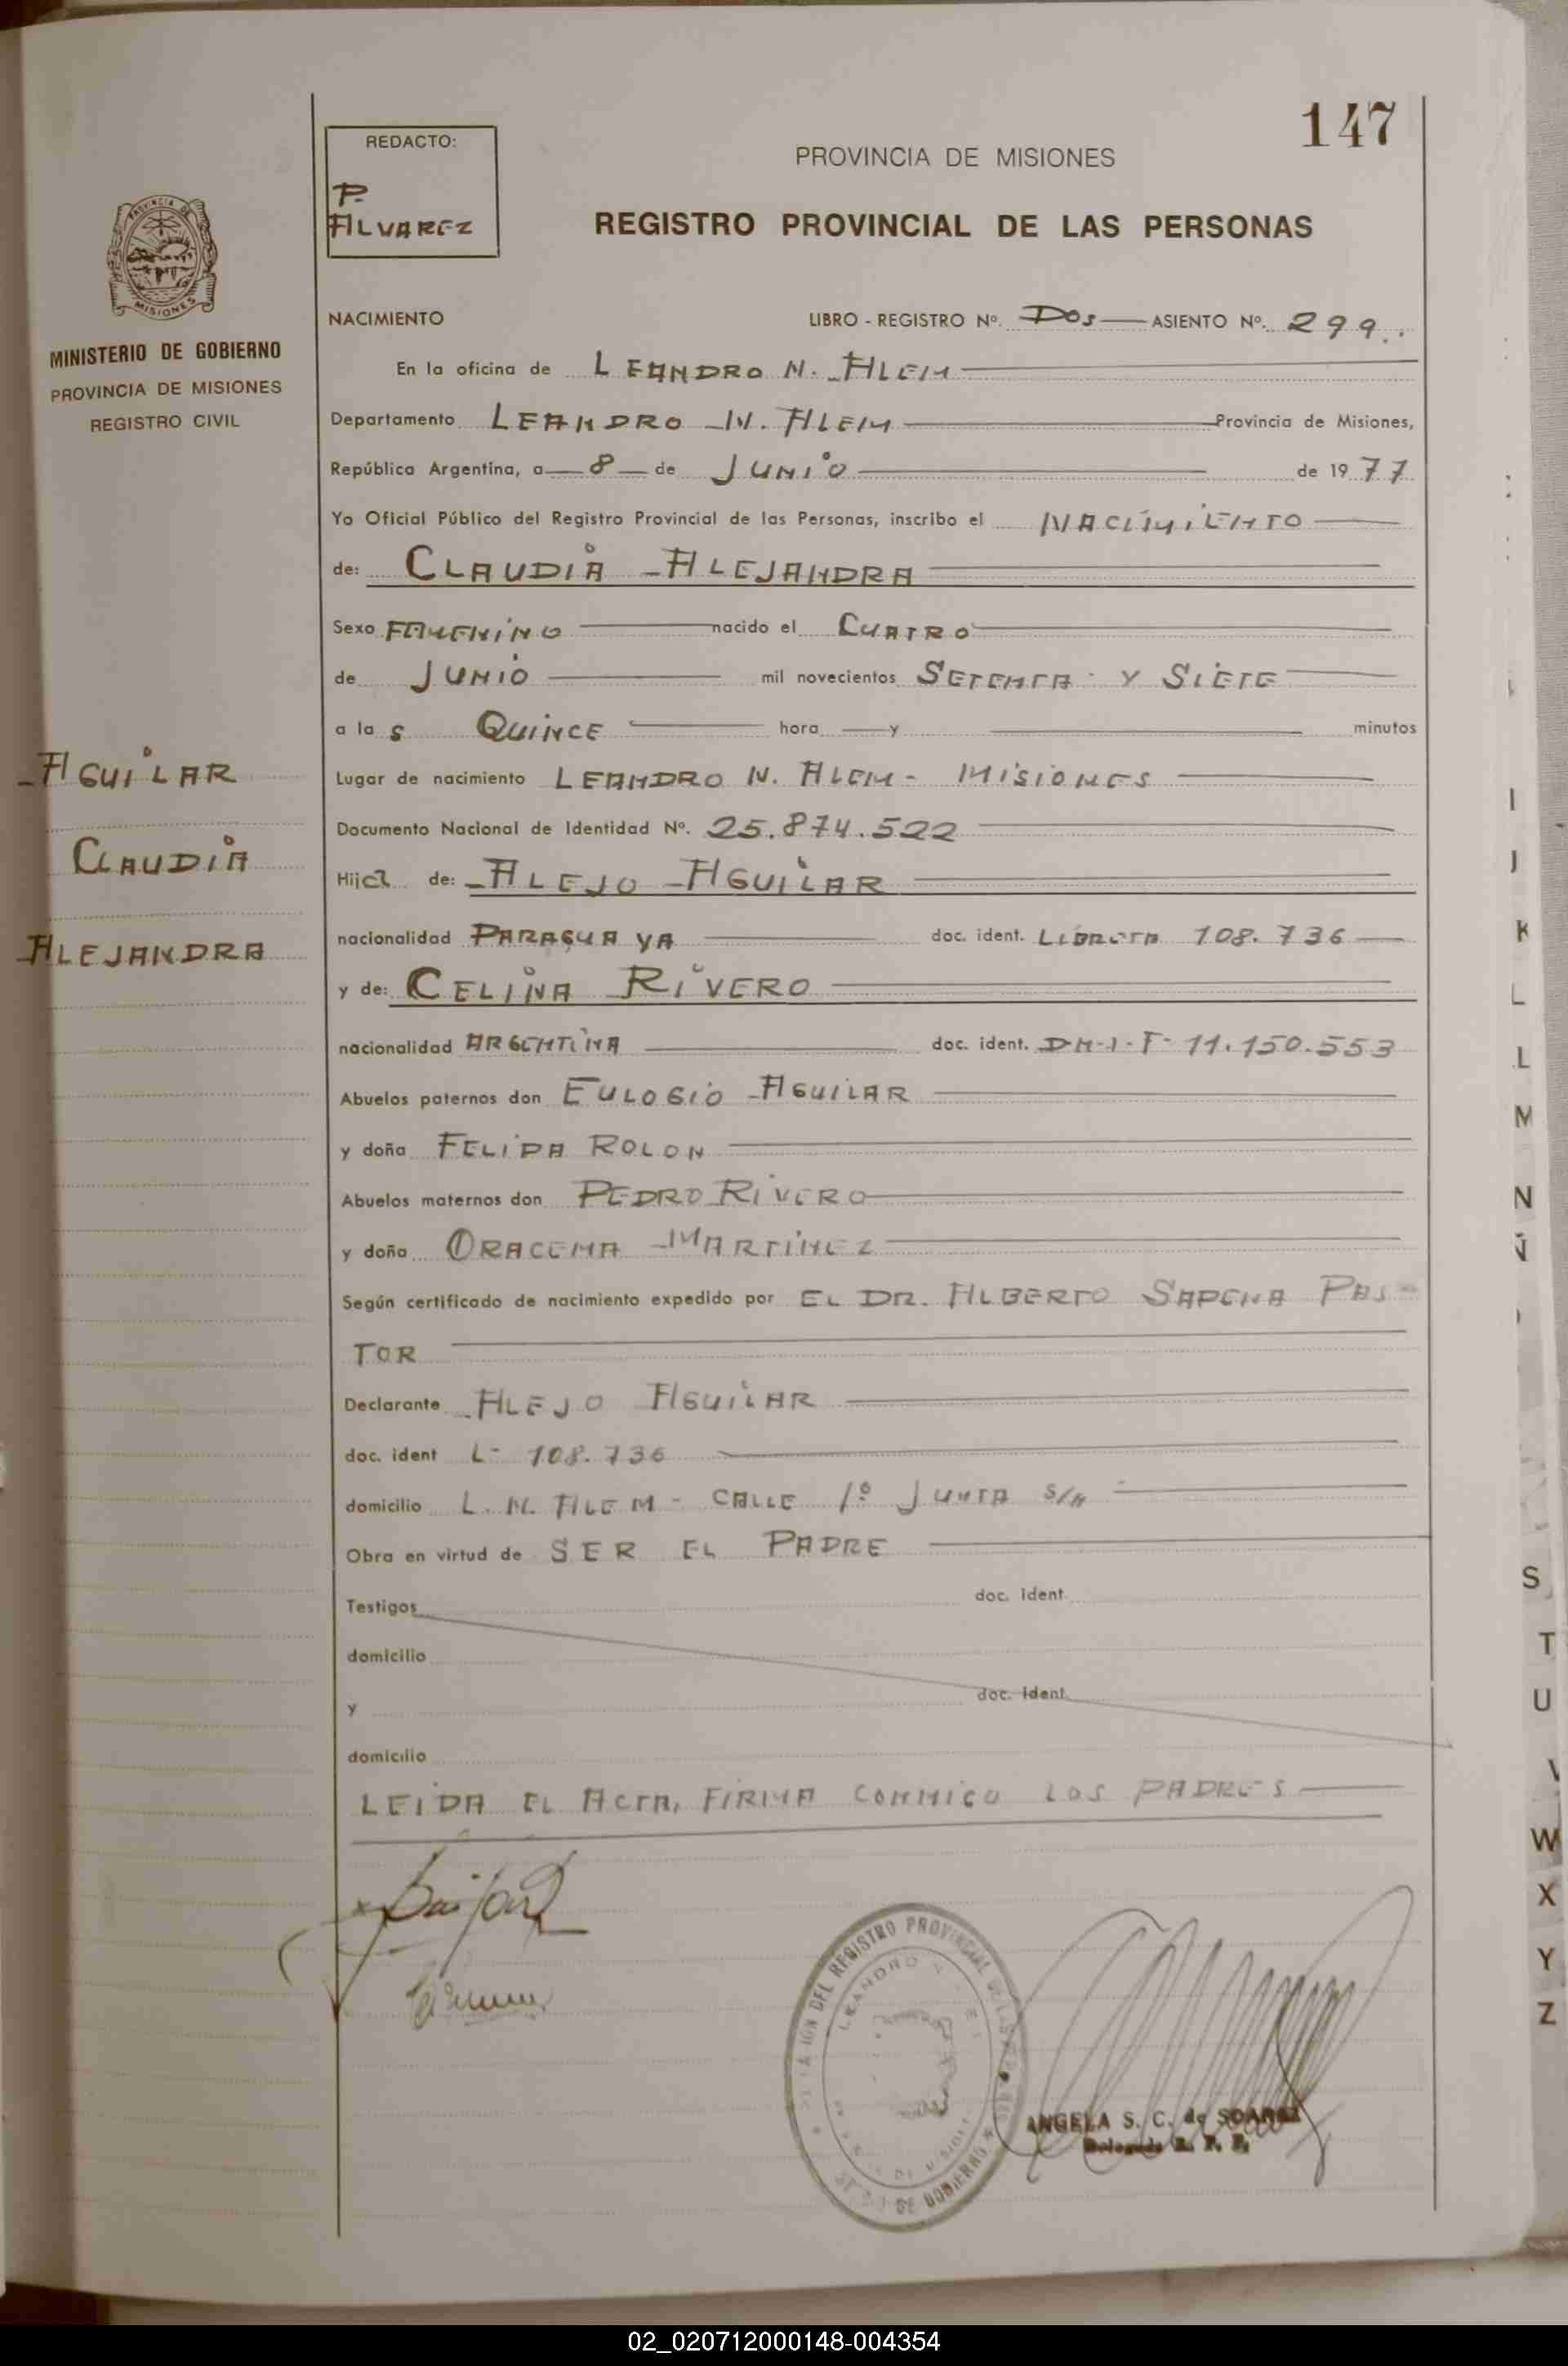 147
REDACTO:
P.
ALVAREZ
PROVINCIA DE MISIONES
REGISTRO PROVINCIAL DE LAS PERSONAS
PROVINCIA DE
MISIONES
MINISTERIO DE GOBIERNO
PROVINCIA DE MISIONES
REGISTRO CIVIL
NACIMIENTO LIBRO - REGISTRO Nº. DOS ASIENTO Nº. 299
En la oficina de LEANDRO N. ALEM
Departamento LEANDRO N. ALEM Provincia de Misiones,
República Argentina, a 8 de JUNIO de 1977
Yo Oficial Público del Registro Provincial de las Personas, inscribo el NACIMIENTO
de: CLAUDIA ALEJANDRA
Sexo FEMENINO nacido el CUATRO
de JUNIO mil novecientos SETENTA Y SIETE
a la s QUINCE hora y minutos
AGUILAR
CLAUDIA
ALEJANDRA
Lugar de nacimiento LEANDRO N. ALEM - MISIONES
Documento Nacional de Identidad Nº. 25.874.522
Hija de: ALEJO AGUILAR
nacionalidad PARAGUAYA doc. ident. LIBRETA 108.736
y de: CELINA RIVERO
nacionalidad ARGENTINA doc. ident. D.N.I.F. 11.150.553
Abuelos paternos don EULOGIO AGUILAR
y doña FELIPA ROLON
Abuelos maternos don PEDRO RIVERO
y doña ORACEMA MARTINEZ
Según certificado de nacimiento expedido por EL DR. ALBERTO SAPENA PAS-
TOR
Declarante ALEJO AGUILAR
doc. ident L- 108.736
domicilio L.N. ALEM - CALLE 1º JUNTA S/N
Obra en virtud de SER EL PADRE
Testigos doc. ident.
domicilio
y doc. ident.
domicilio
LEIDA EL ACTA, FIRMA CONMIGO LOS PADRES
DEL REGISTRO PROVINCIAL DE LAS
LEANDRO
DE GOBIERNO
ANGELA S. C. de SOAREZ
Delegada R. P. P.
I
J
K
L
L
M
N
Ñ
S
T
U
V
W
X
Y
Z
02_020712000148-004354